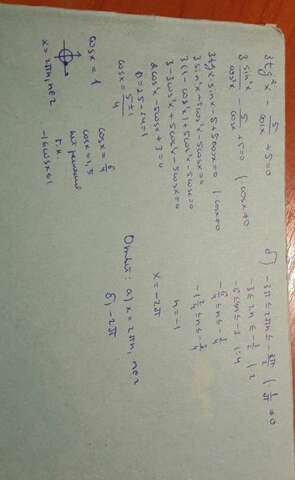 3tg²x - 5/cosx + 5 = 0
3 sin²x/cos²x - 5/cosx + 5 = 0 | cosx ≠ 0
3tgx·sinx - 5 + 5cosx = 0 | cosx ≠ 0
3sin²x + 5cos²x - 5cosx = 0
3(1 - cos²x) + 5cos²x - 5cosx = 0
3 - 3cos²x + 5cos²x - 5cosx = 0
2cos²x - 5cosx + 3 = 0
D = 25 - 24 = 1
cosx = (5±1)/4
cosx = 1
x = 2πn, n∈Z
cosx = 6/4
cosx = 1,5
нет решений
т.к.
-1 ≤ cosx ≤ 1
б) -3π ≤ 2πn ≤ -3π/2 | · 1/π ≠ 0
-3 ≤ 2n ≤ -3/2 | · 2
-6 ≤ 4n ≤ -3 | : 4
-6/4 ≤ n ≤ -3/4
-1 2/4 ≤ n ≤ -3/4
n = -1
x = -2π
Ответ: а) x = 2πn, n∈Z
б) -2π